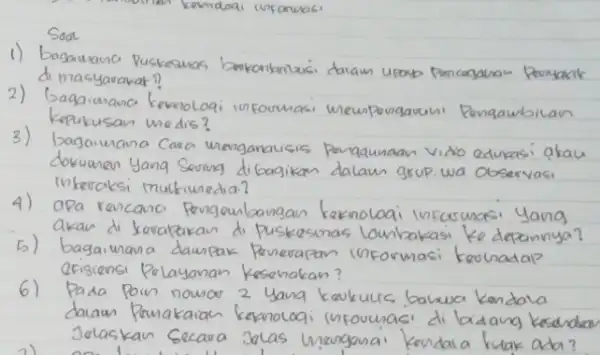 teknologi informasi
Soal
1) bagaimana Puskesmas berkontribusi dalam upaya Pencegahan Penyakit
di masyarakat?
2) bagaimana teknologi informasi mempengaruhi Pengambilan
keputusan medis?
3) bagaimana Cara menganalisis Penggunaan vidio edukasi atau
dokumen yang Sering dibagikan dalam grup wa Observasi
interaksi multimedia?
4) apa rencana Pengembangan teknologi informasi yang
akan di terapkan di puskesmas Lombakasi ke depannya?
5) bagaimana dampak Penerapan informasi terhadap
efisiensi Pelayanan kesehatan?
6) Pada Poin nomor 2 yang tertulis bahwa kendala
dalam Pemakaian teknologi informasi di bidang kesehatan
Jelaskan Secara Jelas mengenai kendala tidak ada?
7)